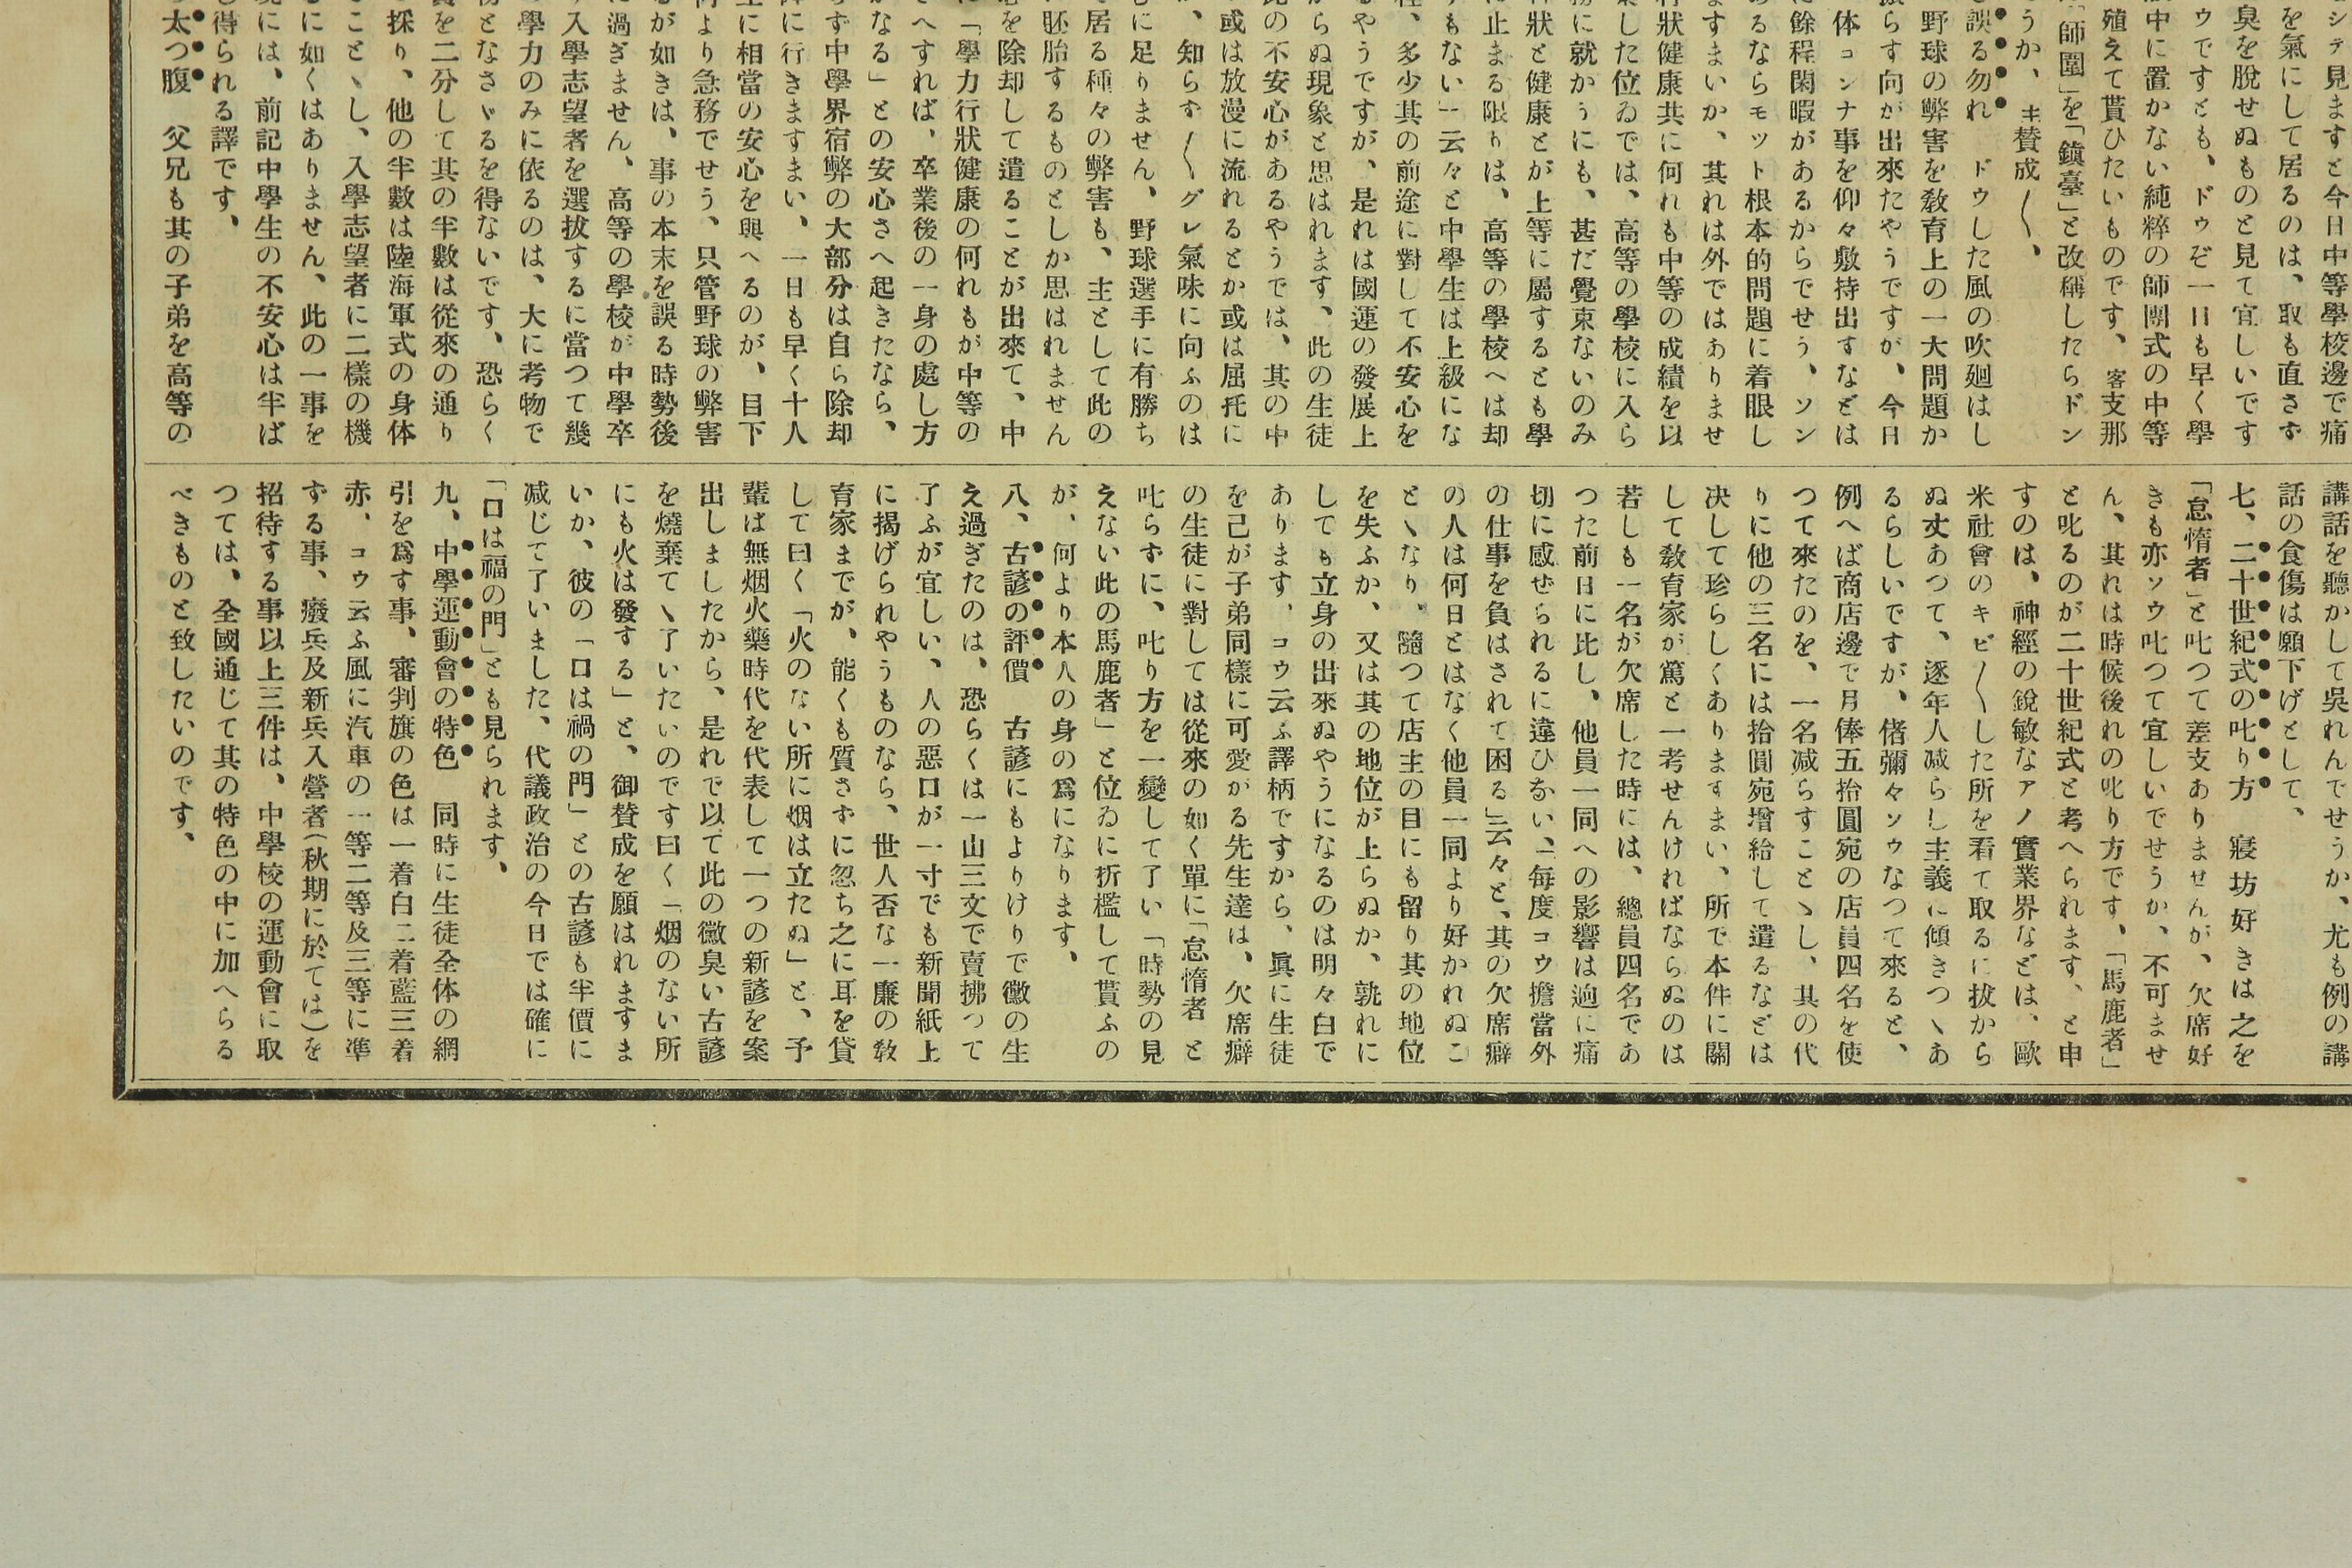 シテ見ますと今日中等學校邊で痛
を氣にして居るのは、取も直さず
臭を脫せぬものと見て宜しいです
ウですとも、ドウぞ一日も早く學
中に置かない純粹の師團式の中等
殖えて貰ひたいものです、客支那
「師團」を「鎭臺」と改稱したらドン
うか、主賛成〳〵、
誤る勿れ　ドウした風の吹廻はし
野球の弊害を敎育上の一大問題か
らす向が出來たやうですが、今日
体コンナ事を仰々敷持出すなどは
餘程閑暇があるからでせう、ソン
あるならモット根本的問題に着眼し
ますまいか、其れは外ではありませ
行狀健康共に何れも中等の成績を以
業した位ゐでは、高等の學校に入ら
務に就かうにも、甚だ覺束ないのみ
狀と健康とが上等に屬するとも學
に止まる限りは、高等の學校へは却
すもない」云々と中學生は上級にな
程、多少其の前途に對して不安心を
るやうですが、是れは國運の發展上
からぬ現象と思はれます、此の生徒
此の不安心があるやうでは、其の中
或は放漫に流れるとか或は屈托に
、知らず〳〵グレ氣味に向ふのは
に足りません、野球選手に有勝ち
居る種々の弊害も、主として此の
胚胎するものとしか思はれません
を除却して遣ることが出來て、中
「學力行狀健康の何れもが中等の
さへすれば、卒業後の一身の處し方
かなる」との安心さへ起きたなら、
らず中學界宿弊の大部分は自ら除却
に行きますまい、一日も早く十人
に相當の安心を與へるのが、目下
何より急務でせう、只管野球の弊害
が如きは、事の本末を誤る時勢後
に過ぎません、高等の學校が中學卒
入學志望者を選拔するに當つて幾
學力のみに依るのは、大に考物で
物となさゞるを得ないです、恐らく
を二分して其の半數は從來の通り
採り、他の半數は陸海軍式の身体
ことゝし、入學志望者に二樣の機
に如くはありません、此の一事を
には、前記中學生の不安心は半ば
し得られる譯です、
太つ腹　父兄も其の子弟を高等の
講話を聽かして吳れんでせうか、尤も例の講
話の食傷は願下げとして、
七、二十世紀式の叱り方　寢坊好きは之を
「怠惰者」と叱つて差支ありませんが、欠席好
きも亦ソウ叱つて宜しいでせうか、不可ませ
ん、其れは時候後れの叱り方です、「馬鹿者」
と叱るのが二十世紀式と考へられます、と申
すのは、神經の銳敏なアノ實業界などは、歐
米社會のキビ〳〵した所を看て取るに拔から
ぬ丈あつて、逐年人减らし主義に傾きつゝあ
るらしいですが、偖彌々ソウなつて來ると、
例へば商店邊で月俸五拾圓宛の店員四名を使
つて來たのを、一名减らすことゝし、其の代
りに他の三名には拾圓宛增給して遣るなどは
决して珍らしくありますまい、所で本件に關
して敎育家が篤と一考せんければならぬのは
若しも一名が欠席した時には、總員四名であ
つた前日に比し、他員一同への影響は逈に痛
切に感ぜられるに違ひない、「每度コウ擔當外
の仕事を負はされて困る」云々と、其の欠席癖
の人は何日とはなく他員一同より好かれぬこ
とゝなり、隨つて店主の目にも留り其の地位
を失ふか、又は其の地位が上らぬか、孰れに
しても立身の出來ぬやうになるのは明々白で
あります、コウ云ふ譯柄ですから、眞に生徒
を己が子弟同樣に可愛がる先生達は、欠席癖
の生徒に對しては從來の如く單に「怠惰者」と
叱らずに、叱り方を一變して了い「時勢の見
えない此の馬鹿者」と位ゐに折檻して貰ふの
が、何より本人の身の爲になります、
八、古諺の評價　古諺にもよりけりで黴の生
え過ぎたのは、恐らくは一山三文で賣拂つて
了ふが宜しい、人の惡口が一寸でも新聞紙上
に揭げられやうものなら、世人否な一廉の敎
育家までが、能くも質さずに忽ち之に耳を貸
して曰く「火のない所に烟は立たぬ」と、予
輩は無烟火藥時代を代表して一つの新諺を案
出しましたから、是れで以て此の黴臭い古諺
を燒棄てゝ了いたいのです曰く「烟のない所
にも火は發する」と、御賛成を願はれますま
いか、彼の「口は禍の門」との古諺も半價に
减じて了いました、代議政治の今日では確に
「口は福の門」とも見られます、
九、中學運動會の特色　同時に生徒全体の綱
引を爲す事、審判旗の色は一着白二着藍三着
赤、コウ云ふ風に汽車の一等二等及三等に準
ずる事、癈兵及新兵入營者(秋期に於ては)を
招待する事以上三件は、中學校の運動會に取
つては、全國通じて其の特色の中に加へらる
べきものと致したいのです、